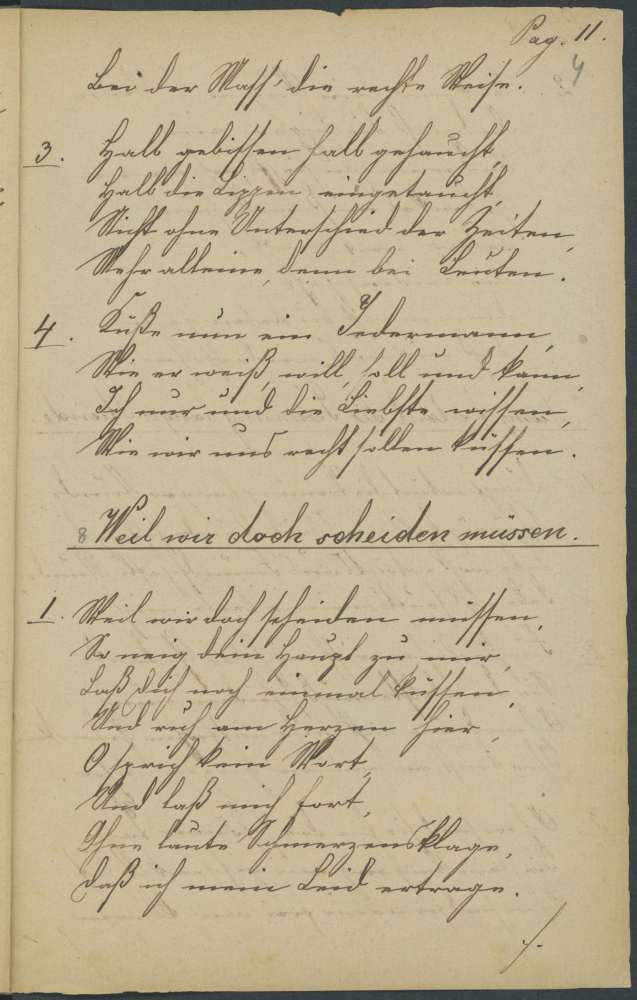 Pag. 11.
4
Bei der Mass', die rechte Weise.
3. Halb gebissen halb gehaucht,
Halb die Lippen eingetaucht,
Nicht ohne Unterschied der Zeiten,
Mehr alleine, denn bei Leuten.
4. Küße nun ein Jedermann,
Wie er weiß, will, soll und kann,
Ich nur und die Liebste wissen,
Wie wir uns recht sollen küssen.
8 Weil wir doch scheiden müssen.
1. Weil wir doch scheiden müssen,
So neig dein Haupt zu mir,
Laß dich noch einmal küssen,
Und ruh am Herzen hier,
O sprich kein Wort,
Und laß mich fort,
Ohne laute Schmerzensklage,
Daß ich mein Leid ertrage.
./.